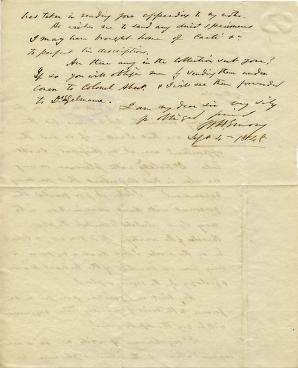 has taken in sending your appending to my note.
He wishes me to send any dried specimens
I may have brought home of Cacti &c
to perfect his descriptions.
Are there any in the collection sent you?
If so you will oblige me by sending them under
cover to Colonel Abert, & I will see them forwarded
to Dr Engelmann.
I am my dear sir very truly
yr obliged
W H Emory
Sept 4 - 1848